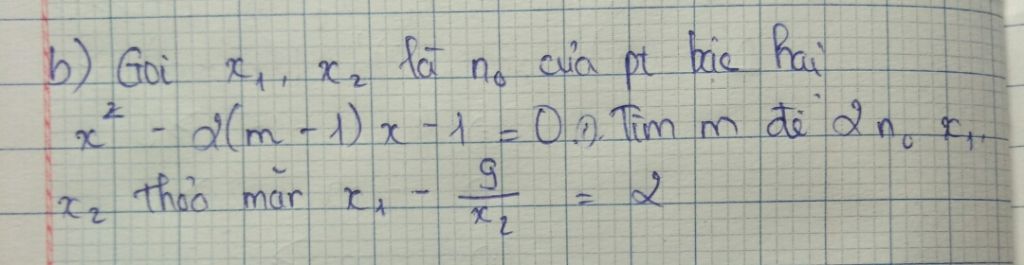 b) Gọi x₁, x₂ là n₀ của pt bậc hai
x² - 2(m-1)x - 1 = 0 (1). Tìm m để 2 n₀ x₁,
x₂ thỏa mãn x₁ - 9/x₂ = 2